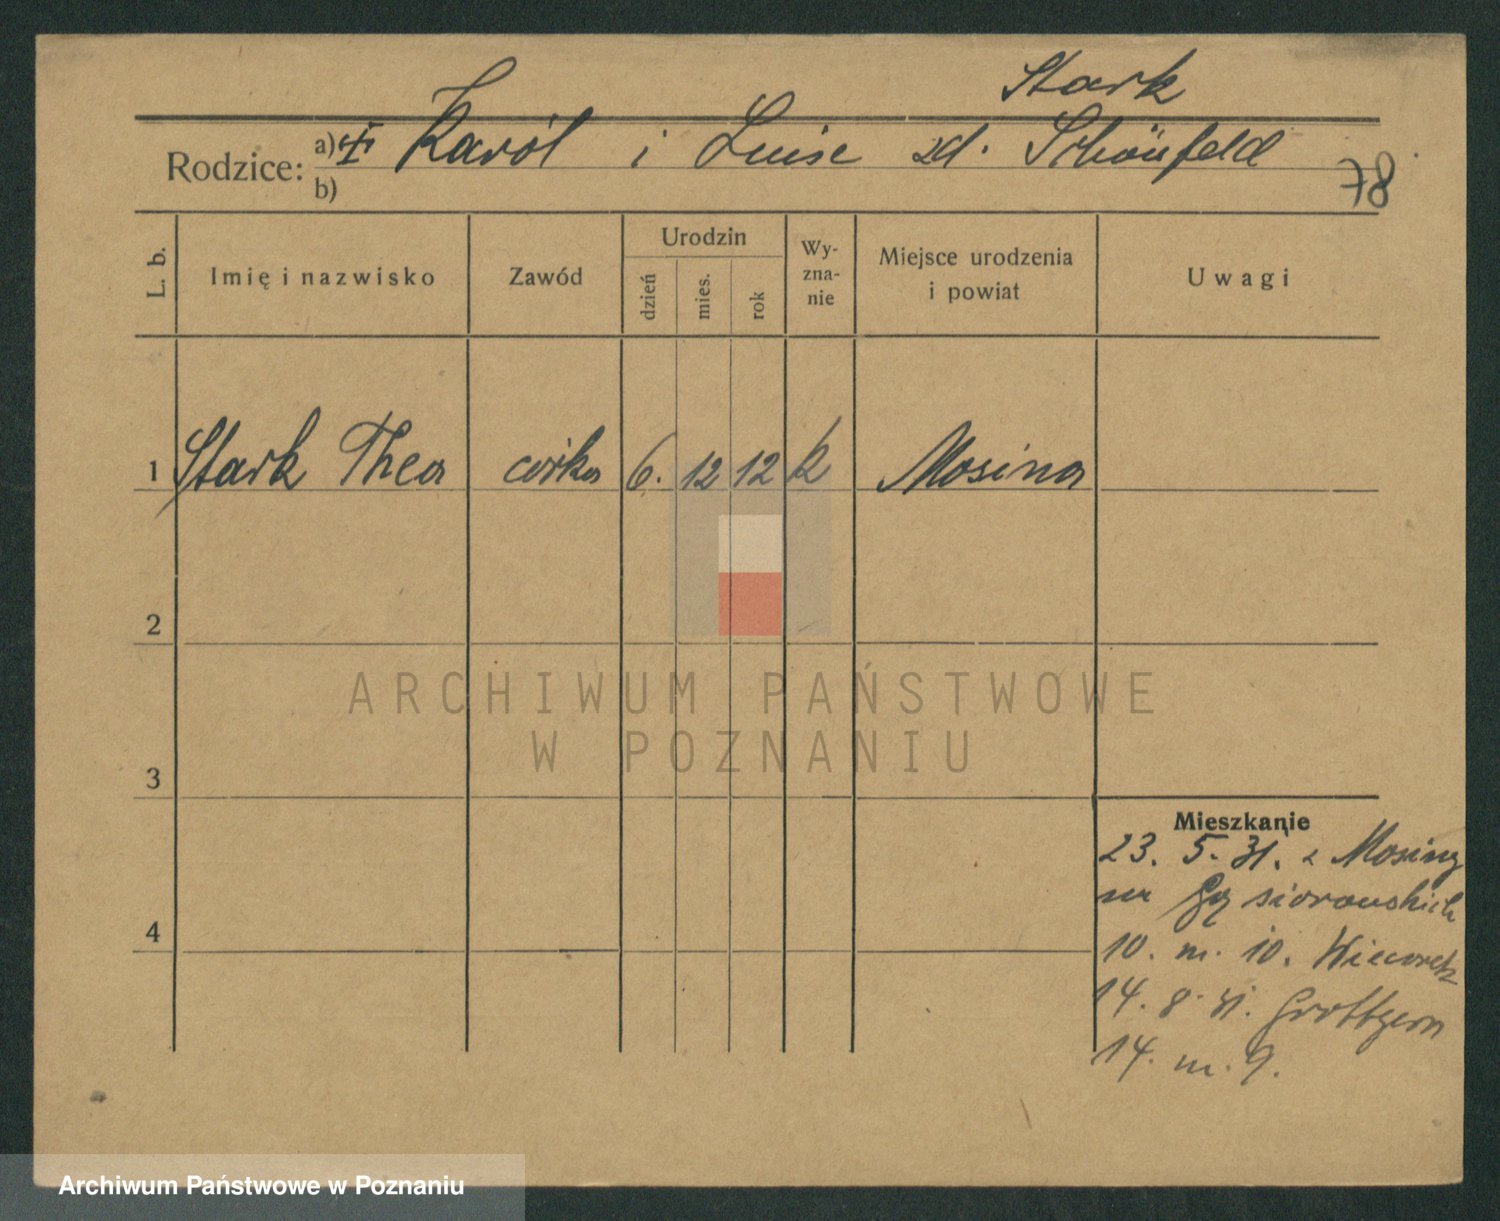 Stark
Rodzice: a) Karól i Luise zd. Schönfeld
b)
78
L. b.
Imię i nazwisko
Zawód
Urodzin
dzień
mies.
rok
Wy-
zna-
nie
Miejsce urodzenia
i powiat
Uwagi
1 Stark Thea córka 6. 12 12 k Mosina
2
3
4
Mieszkanie
23. 5. 31. z Mosiny
na Gąsiorowskich
10. m. 10.
14. 8. 31. Grottgera
14. m. 9.
ARCHIWUM PAŃSTWOWE
W POZNANIU
Archiwum Państwowe w Poznaniu